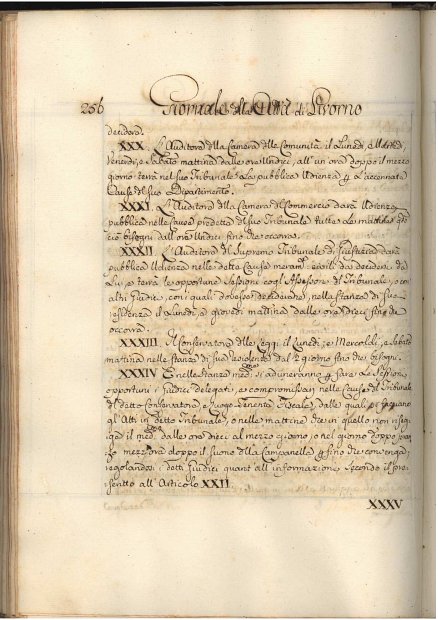 256 Giornale della Città di Livorno
desidera.
XXX. L'Auditore della Camera delle Comunità il Lunedì, e Martedì,
Venerdì, e Sabato mattina dalle ore Undici, all' un' ora doppo il mezzo
giorno terrà nel suo Tribunale La pubblica Udienza
Cause del suo Dipartimento.
XXXI. L'Auditore della Camera di Commercio darà Udienza
pubblica nelle Cause predette del suo Tribunale tutte Le mattine
ciò bisogni dall' ore Undici fino che occorra.
XXXII. L'Auditore del Supremo Tribunale di Giustizia darà
pubblica Udienza nelle dette Cause meram. civili da decidersi da
Lui, e terrà le opportune Sessioni cogl' Assessori del Tribunale, o con
altri Giudici, con i quali dovesse deciderne, nella Stanza di sua
residenza il Lunedì, e giovedì mattina dalle ore Dieci fino che
occorra.
XXXIII. Il Conservatore delle Leggi il Lunedì, e Mercoldì, e Sabato
mattina nelle stanze di sua residenza dal giorno fino che bisogni.
XXXIV. E nelle stanze med. si aduneranno fare Le Sessioni
opportuni i Giudici delegati, e compromissari nelle Cause del Tribunale
del detto Conservatore e Luogo Tenente Fiscale, dalle quali
gl' Atti in detto Tribunale, o nelle mattine che in quello non
il med. dalle ore dieci al mezzo giorno, o nel giorno doppo
mezz'ora doppo il suono della Campanella fino che convenga,
regolandosi i detti Giudici quant' all' informazione Secondo il pre-
scritto all' Articolo XXII.
XXXV